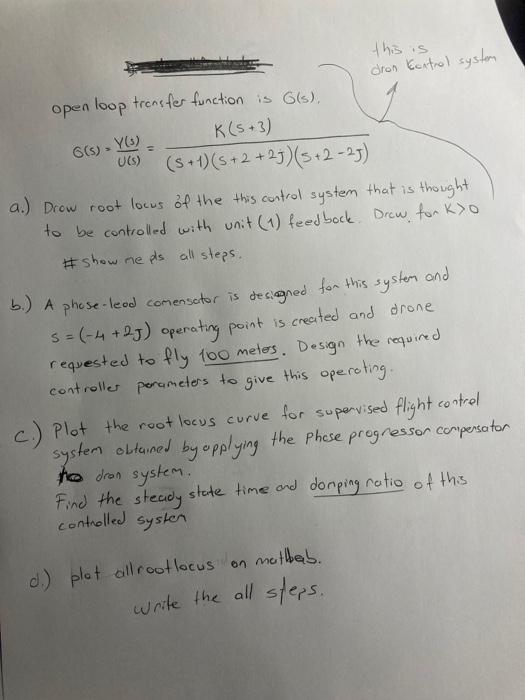 this is
dron Kontrol system
open loop trensfer function is G(s).
G(s) = Y(s)/U(s) = K(s+3)/(s+1)(s+2+2j)(s+2-2j)
a.) Drow root locus of the this control system that is thought
to be controlled with unit (1) feedback. Drow. for K>0
# show me pls all steps.
b.) A phase-lead comensator is designed for this system and
s = (-4 +2J) operating point is created and drone
requested to fly 100 meters. Design the required
controller perameters to give this operating.
C.) Plot the root locus curve for supervised flight control
system obtained by applying the phase progressor compensator
to dron system.
Find the steady state time and damping ratio of this
controlled system
d.) plot all root locus on matlab.
write the all steps.